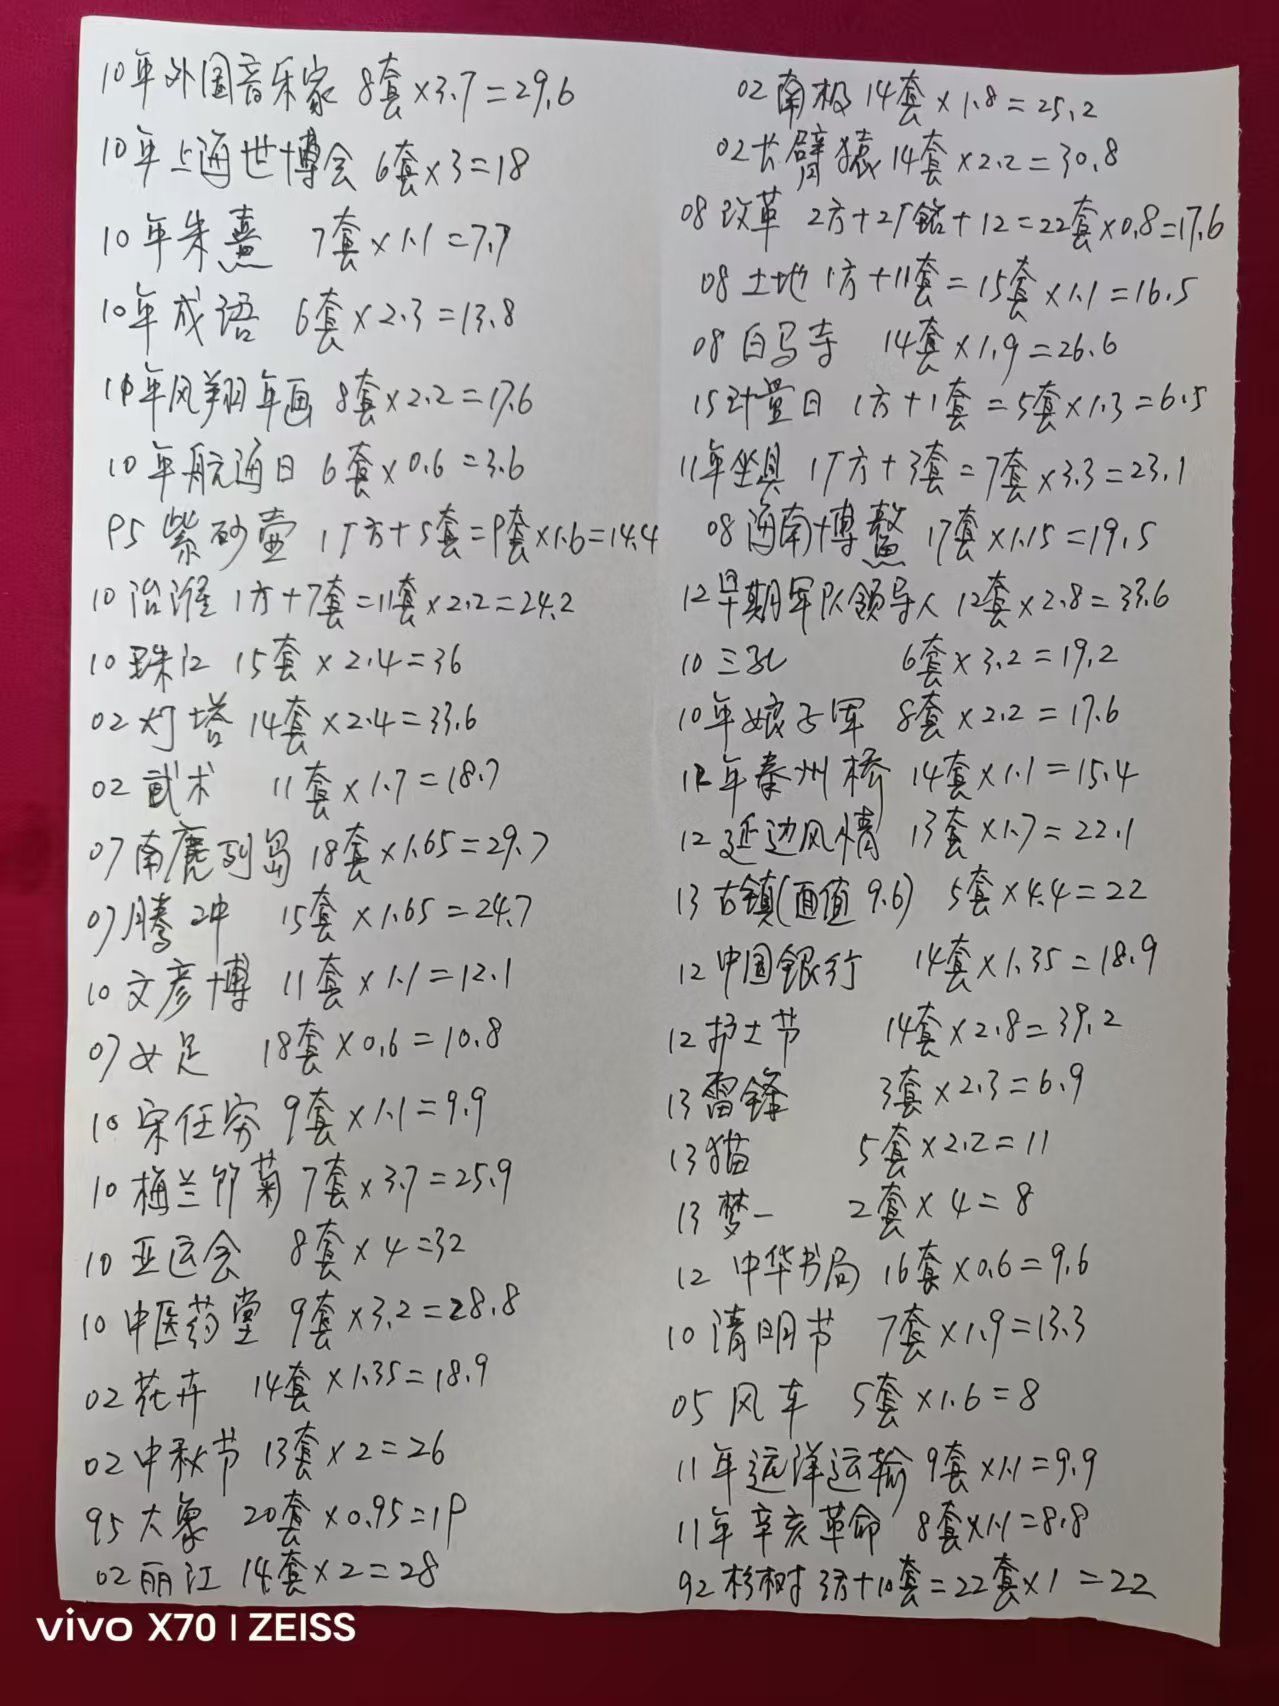 10年外国音乐家 8套×3.7=29.6
10年上海世博会 6套×3=18
10年朱熹 7套×1.1=7.7
10年成语 6套×2.3=13.8
10年凤翔年画 8套×2.2=17.6
10年航海日 6套×0.6=3.6
95紫砂壶 1丁方+5套=9套×1.6=14.4
10治淮 1方+7套=11套×2.2=24.2
10珠江 15套×2.4=36
02灯塔 14套×2.4=33.6
02武术 11套×1.7=18.7
07南鹿列岛 18套×1.65=29.7
07腾冲 15套×1.65=24.7
10文彦博 11套×1.1=12.1
07女足 18套×0.6=10.8
10宋任穷 9套×1.1=9.9
10梅兰竹菊 7套×3.7=25.9
10亚运会 8套×4=32
10中医药堂 9套×3.2=28.8
02花卉 14套×1.35=18.9
02中秋节 13套×2=26
95大象 20套×0.95=19
02丽江 14套×2=28
02南极 14套×1.8=25.2
02长臂猿 14套×2.2=30.8
08改革 2方+2丁铭+12=22套×0.8=17.6
08土地 1方+11套=15套×1.1=16.5
08白马寺 14套×1.9=26.6
15计量日 1方+1套=5套×1.3=6.5
11年坐具 1丁方+3套=7套×3.3=23.1
08海南博鳌 17套×1.15=19.5
12早期军队领导人 12套×2.8=33.6
10三孔 6套×3.2=19.2
10年娘子军 8套×2.2=17.6
12年秦州桥 14套×1.1=15.4
12延边风情 13套×1.7=22.1
13古镇(面值9.6) 5套×4.4=22
12中国银行 14套×1.35=18.9
12护士节 14套×2.8=39.2
13雷锋 3套×2.3=6.9
13猫 5套×2.2=11
13梦一 2套×4=8
12中华书局 16套×0.6=9.6
10清明节 7套×1.9=13.3
05风车 5套×1.6=8
11年远洋运输 9套×1.1=9.9
11年辛亥革命 8套×1.1=8.8
92杉树 3方+10套=22套×1=22
vivo X70 | ZEISS